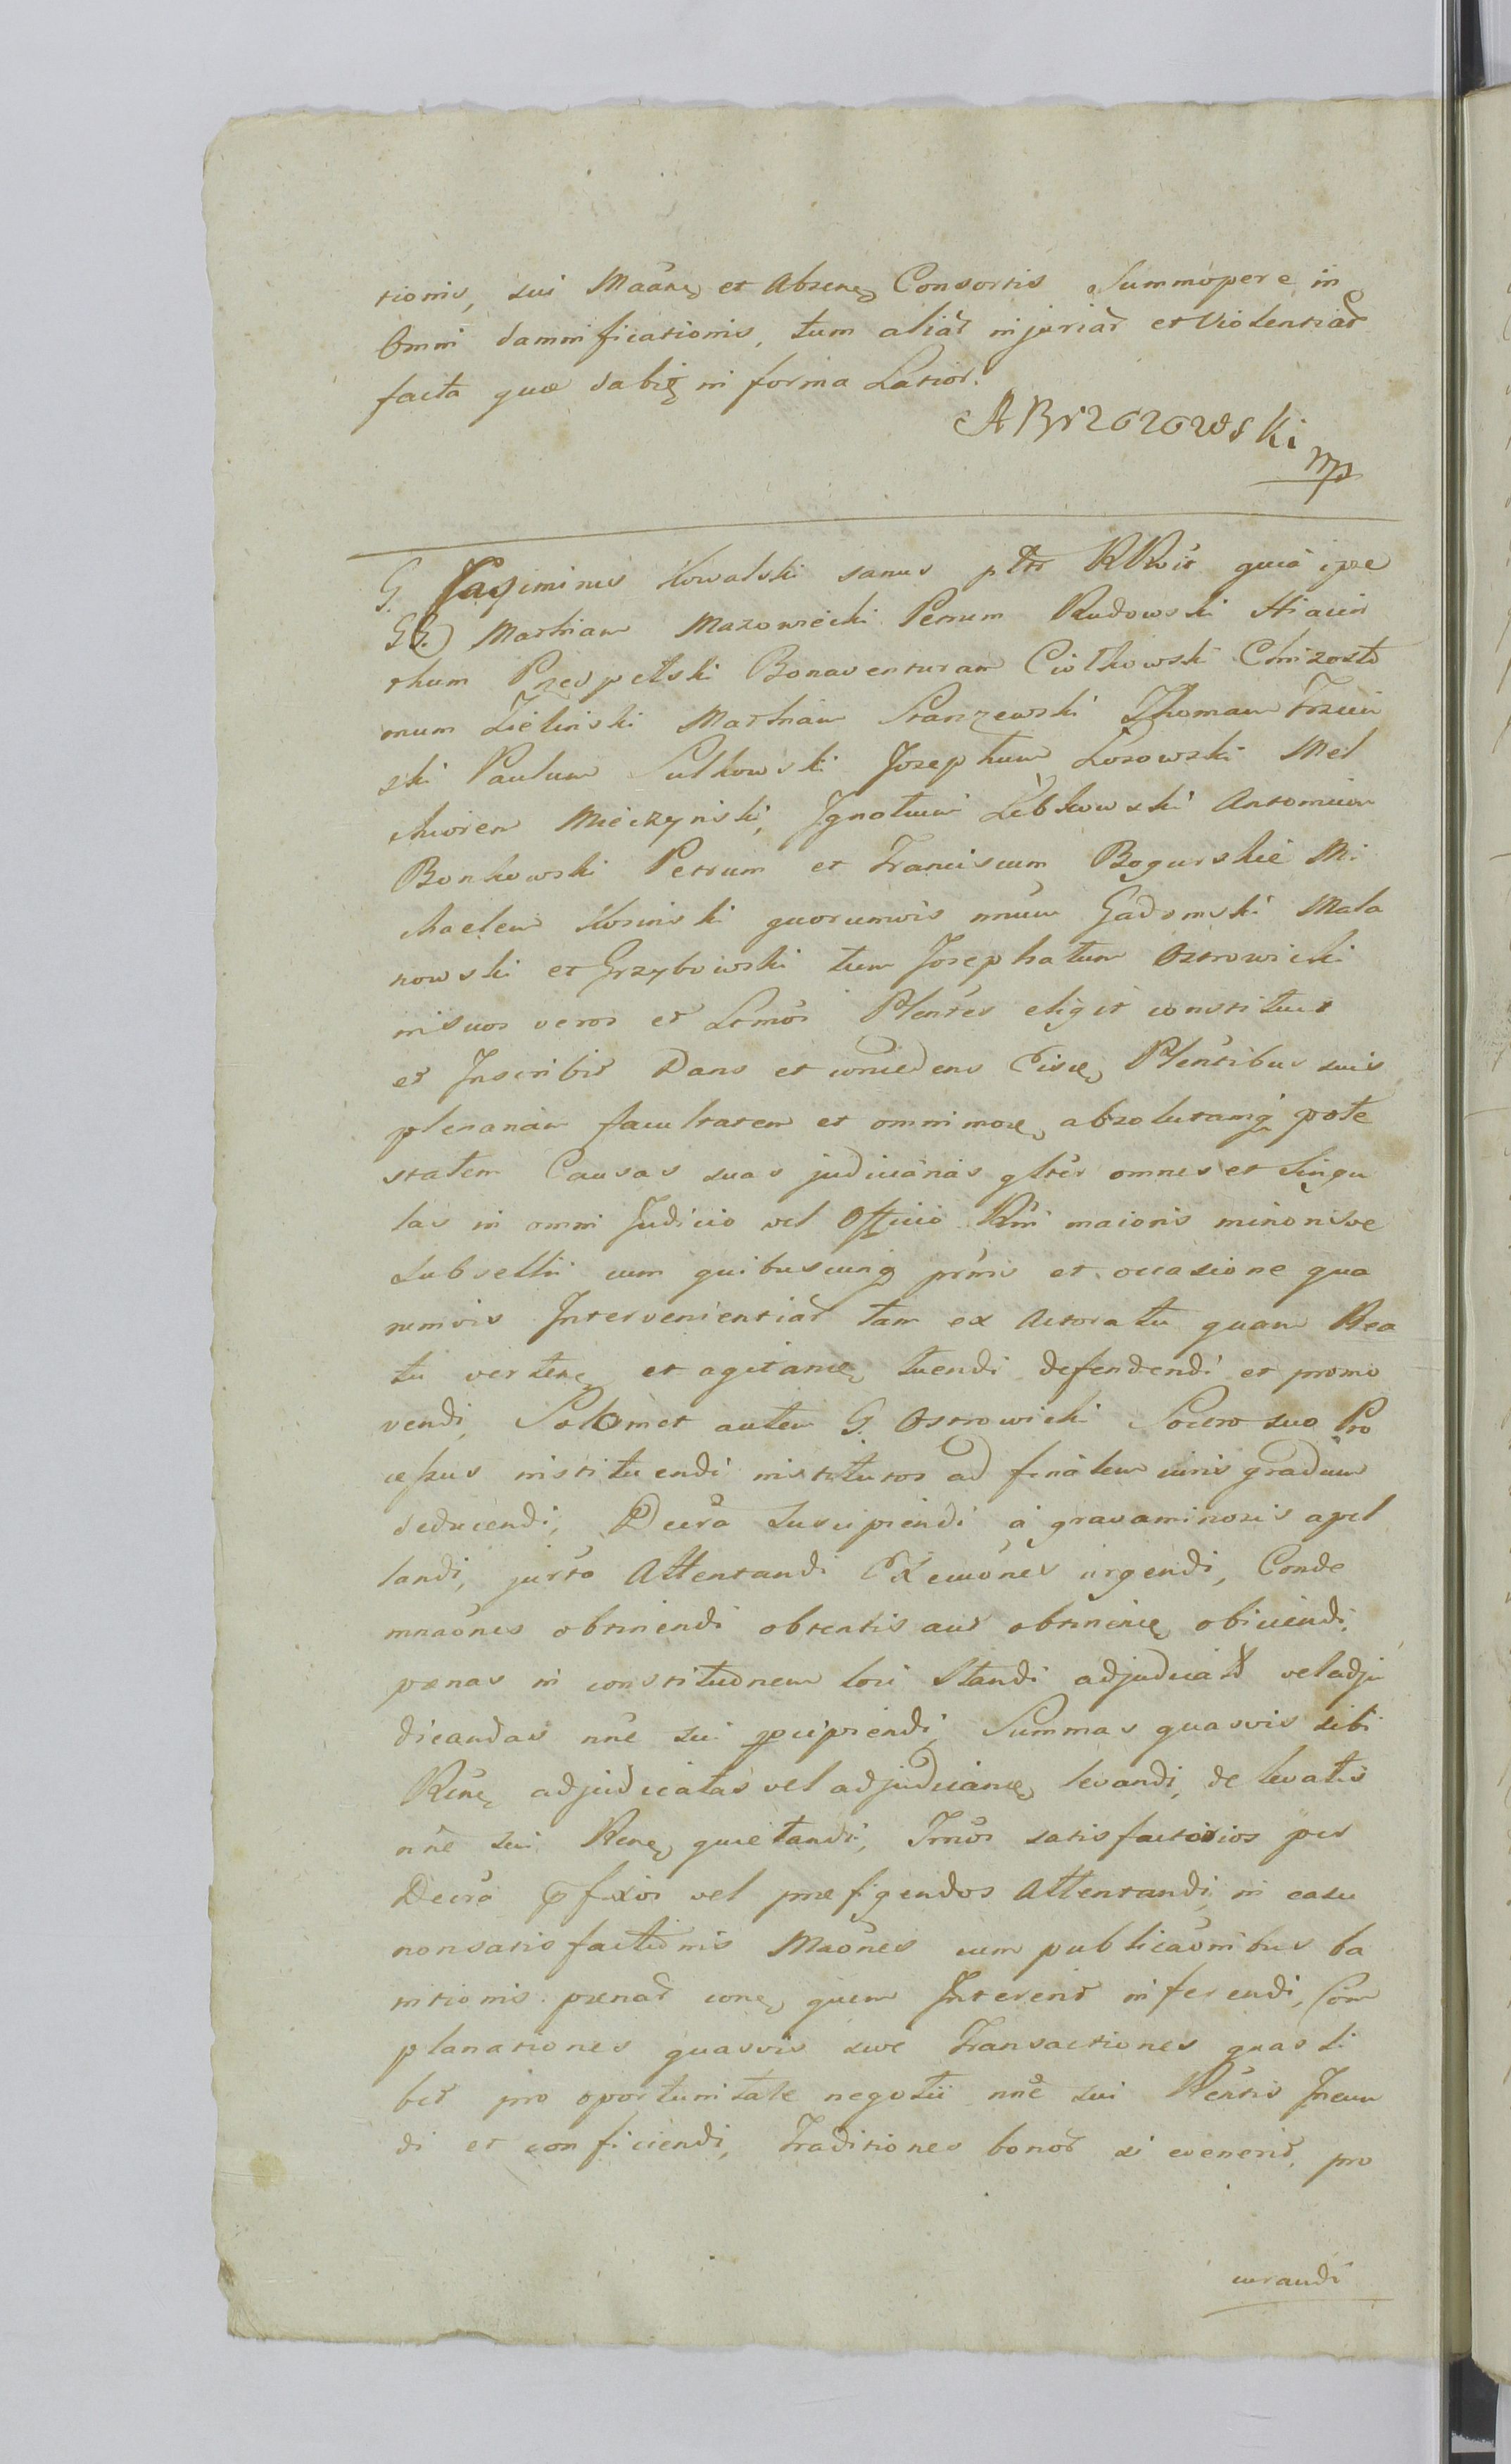 tionis, sui Maãne et Absene Consortis Summopere in
Omni damnificationis, tum aliar injuriar et Violentiar
facta quæ dabig in forma Latior.
ABrzozowski
mp
G. Casiminus Kowalski sanus pltr RRvit quia ipse
GG. Mathiam Mazowiecki Petrum Rudowski Hiacin
thum Przespelski Bonaventuram Ciołkowski Chrizosto
mum Zieliński Mathiam Staszewski Thomam Trzciń
ski Paulum Sulkowski Josephum Losowski Mel
chiorem Mieczynski, Ignatium Lębkowski Antonium
Bonkowski Petrum et Franciscum Bogurskie Mi
chaelem Kosinski quorumvis unum Gadomski Mala
nowski et Grzybowski tum Josephatum Ostrowicki
in suos veros et Ltmõs Plentes eligit constituit
et Inscribit Dans et concedens Eisce Plentibus suis
plenariam facultatem et omnimoie absolutamq pote
statem Causas suas judiciarias gltẽr omnes et singu
las in omni Judicio vel Officio Rni maioris minorisve
Subsellii cum quibuscunq prnis et occasione qua
rumvis Intervenientiar tam ex Actoratu quam Rea
tu verten et agitanie tuendi defendendi et promo
vendi, Solomet autem G. Ostrowicki Socero suo Pro
cessus instituendi institutos ad finalem iuris gradum
deducendi, Decra Suscipiendi a gravaminosis apel
landi, jurto Attentandi Exẽcuõnes urgendi, Conde
mnaõnes obtinendi obtentis aut obtinene obiiciendi,
pœnas in constituonem loci Standi adjudicatt vel adju
dicandas nne sui pcipiendi, Summas quasvis sibi
Rene adjudicatas vel adjudicane levandi, de levatis
nne sui Rene quietandi, Trnos satisfactorios per
Decra pfixos vel præfigendos Attentandi, in casu
nonsatisfactionis Maõnes cum publicaõnibus ba
nitionis pænar cone quem Intererit inferendi, Com
planationes quasvis sive Transactiones quasli
bet pro oportunitate negotii nne sui Rentis Ineun
di et conficiendi, Traditiones bonor si evenerit, pro
curandi